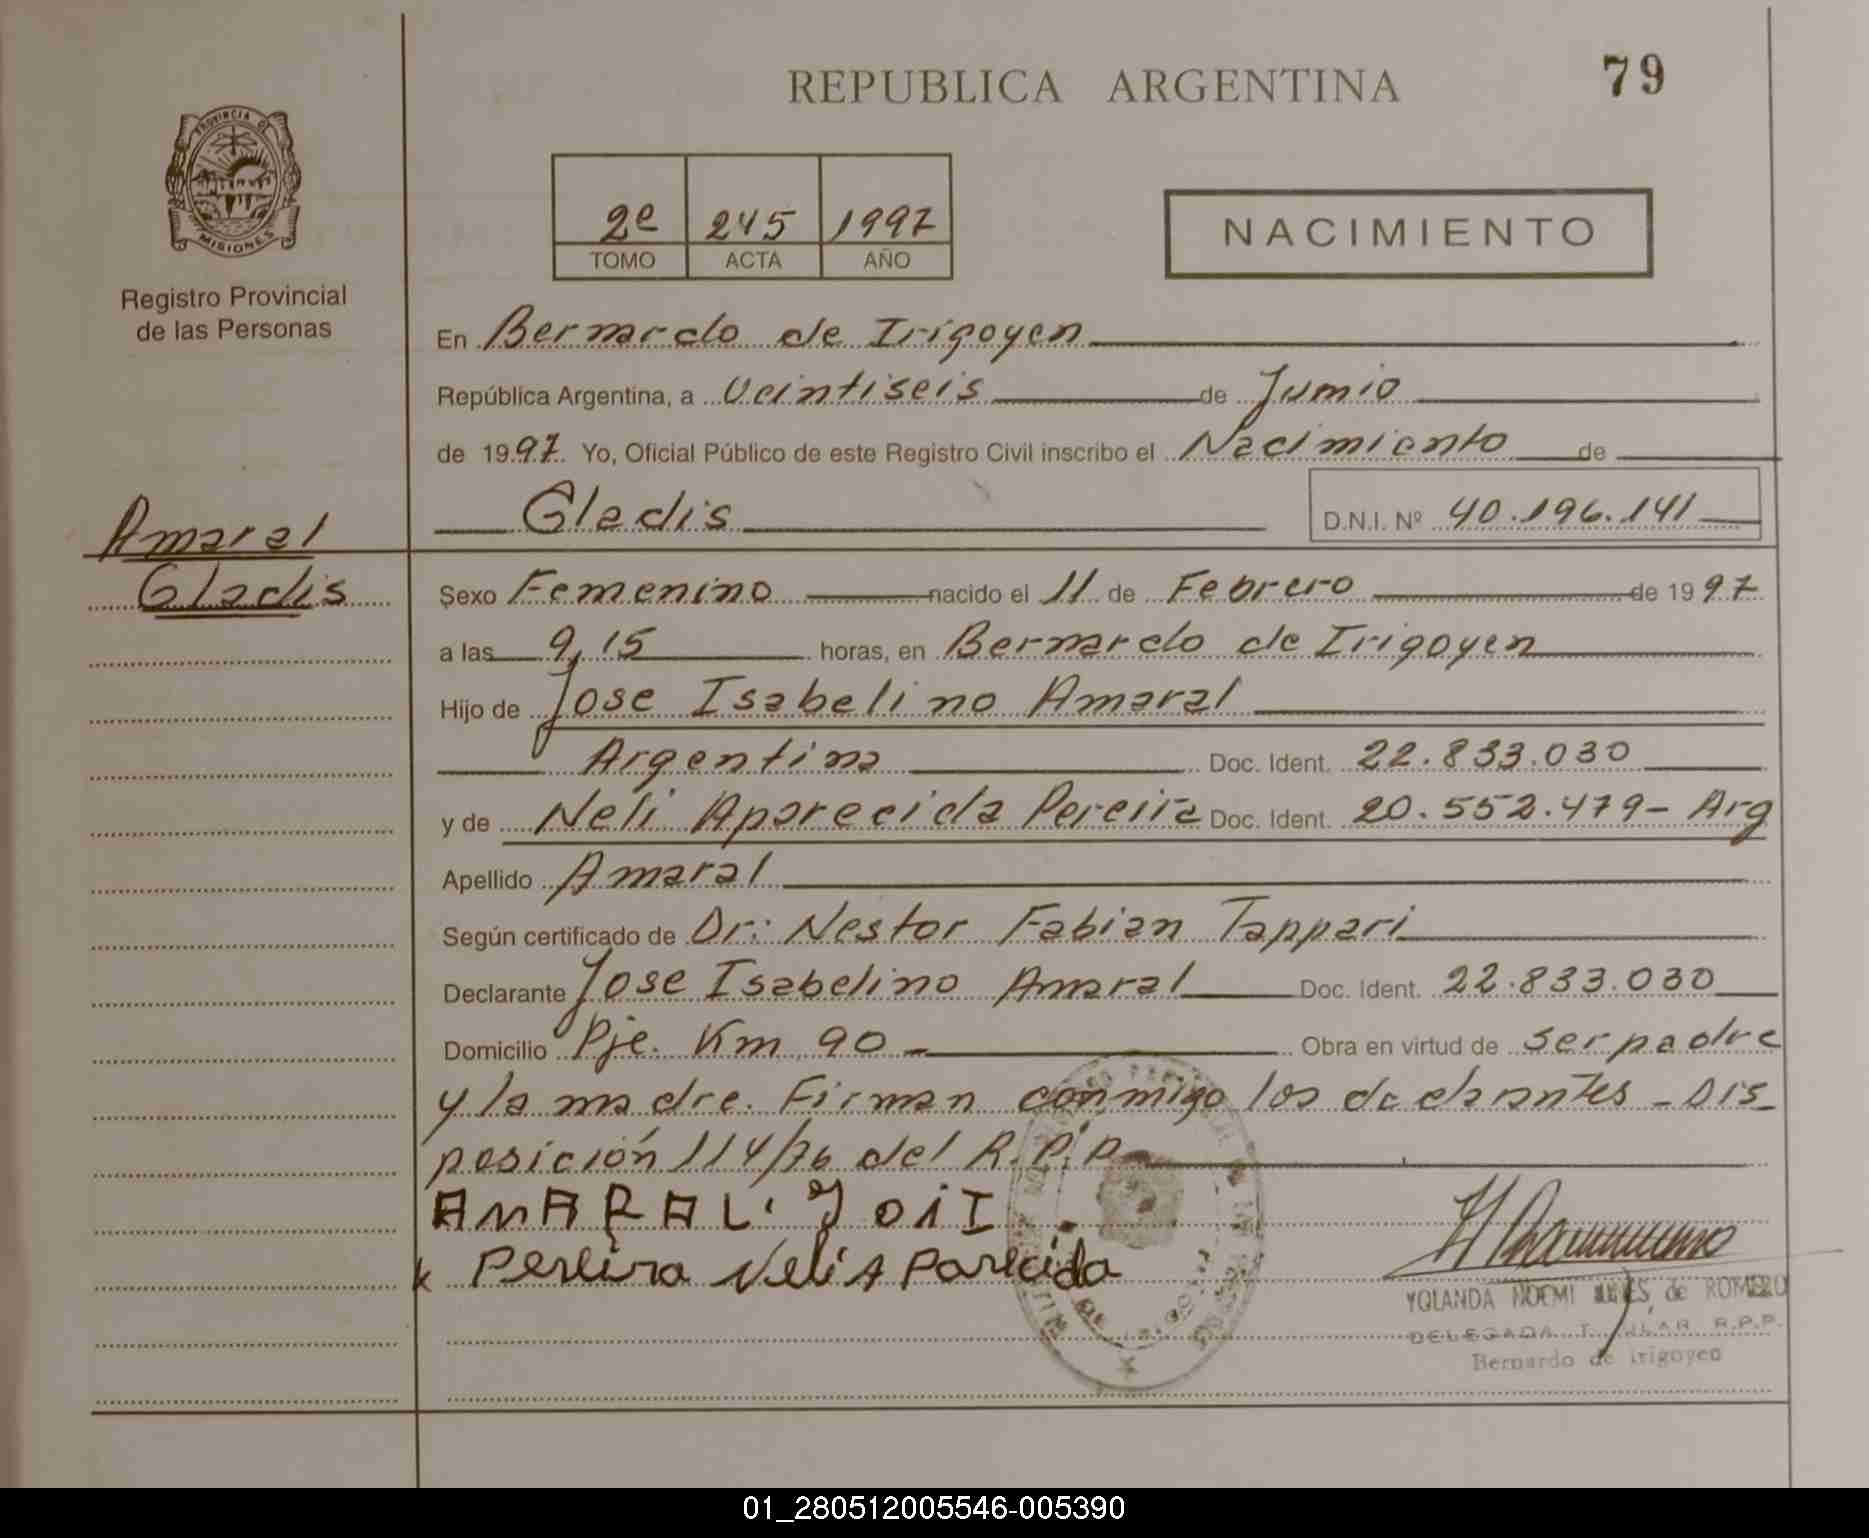 REPUBLICA ARGENTINA
79
PROVINCIA DE
MISIONES
Registro Provincial
de las Personas
2e 245 1997
TOMO ACTA AÑO
NACIMIENTO
En Bernardo de Irigoyen
República Argentina, a Veintiseis de Junio
de 1997. Yo, Oficial Público de este Registro Civil inscribo el Nacimiento de
Gladis
D.N.I. Nº 40.196.141
Amaral
Gladis
Sexo Femenino nacido el 11 de Febrero de 1997
a las 9,15 horas, en Bernardo de Irigoyen
Hijo de Jose Isabelino Amaral
Argentina Doc. Ident. 22.833.030
y de Neli Aparecida Pereira Doc. Ident. 20.552.479- Arg
Apellido Amaral
Según certificado de Dr: Nestor Fabian Tappari
Declarante Jose Isabelino Amaral Doc. Ident. 22.833.030
Domicilio Pje. Km 90 Obra en virtud de ser padre
y la madre. Firman conmigo los declarantes - Dis-
posición 114/76 del R.P.P.
AMARAL. JOSI
Pereira Neli Aparecida
YOLANDA NOEMI de ROMERO
DELEGADA R.P.P.
Bernardo de Irigoyen
01_280512005546-005390